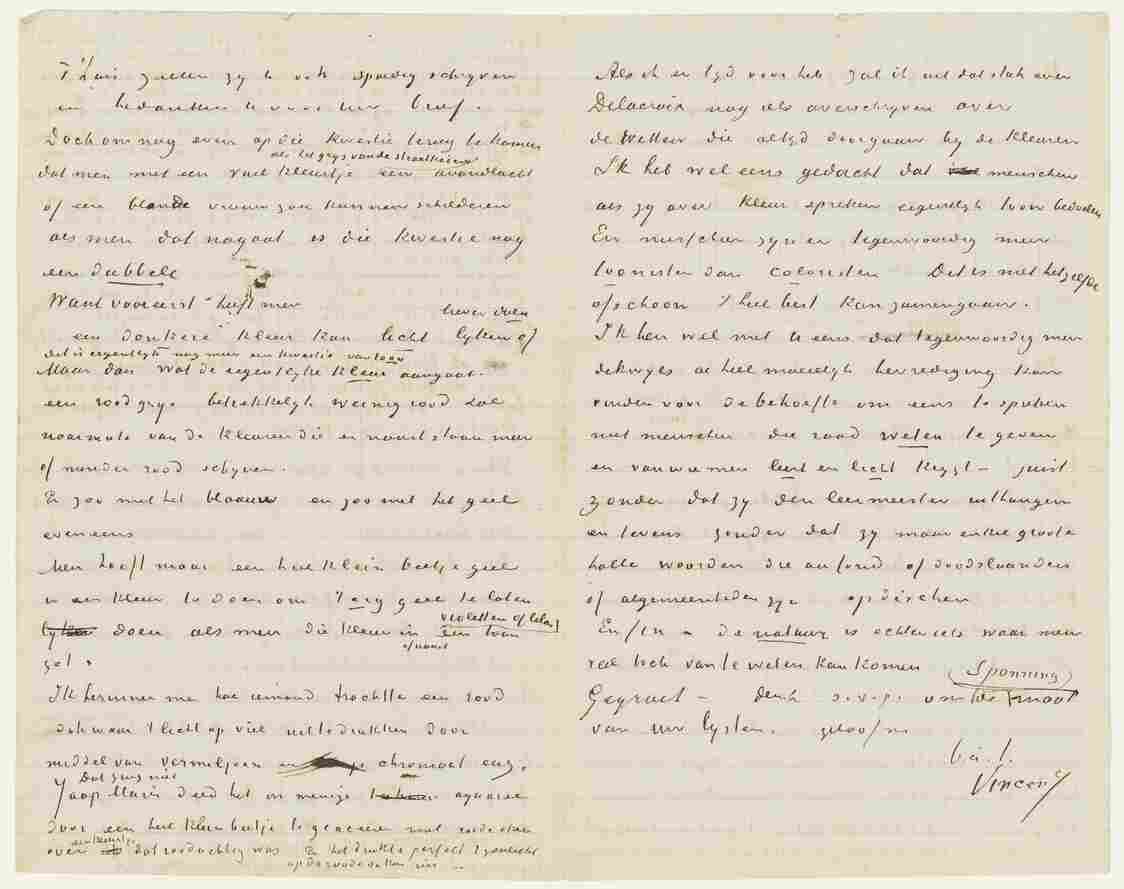 zy U ook spoedig schryven
en bedanken U voor uw brief.
Doch om nog even op die kwestie terug te komen
als het grys van de straatkeien
dat men met een vuil kleurtje een avondlucht
of een blonde vrouw zou kunnen schilderen
als men dat nagaat is die kwestie nog
een dubbele
Want vooreerst heeft men
liever doen
een donkere kleur kan licht lyken of
dit is eigentlyk nog meer een kwestie van toon
Maar dan wat de eigentlyke kleur aangaat.
een rood grys betrekkelyk weinig rood zal
naarmate van de kleuren die er naast staan meer
of minder rood schynen.
En zoo met het blaauw en zoo met het geel
eveneens
Men hoeft maar een heel klein beetje geel
in een kleur te doen om 't erg geel te laten
doen als men die kleur in een violetten of lilas
toon
of naast
zet.
Ik herinner me hoe iemand trachtte een rood
dak waar 't licht op viel uit te drukken door
middel van vermiljoen chromaat enz.
Dat ging niet
Jaap Maris deed het in menige aquarel
door een heel klein beetje te glaceren met rooden oker
over een kleurtje dat roodachtig was En het drukte perfekt 't zonlicht
op de roode daken uit

Als ik er tyd voor heb zal ik uit dat stuk over
Delacroix nog iets overschryven over
de wetten die altyd doorgaan by de kleuren
Ik heb wel eens gedacht dat menschen
als zy over kleur spreken eigentlyk toon bedoelen
En misschien zyn er tegenwoordig meer
toonisten dan coloristen Dit is niet hetzelfde
ofschoon 't heel best kan samengaan.
Ik ben wel met U eens dat tegenwoordig men
dikwyls al heel moeielyk bevrediging kan
vinden voor de behoefte om eens te spreken
met menschen die raad weten te geven
en van wie men leert en licht krygt – juist
zonder dat zy den leermeester uithangen
en tevens zonder dat zy maar enkel groote
holle woorden die au fond of doodslaanders
of algemeenheden zyn opdisschen
Enfin – de natuur is echter iets waar men
zal toch van te weten kan komen
(Sponning)
Gegroet – denk s.v.p. om de maat
van uw lysten. geloof me
t. à t.
Vincent